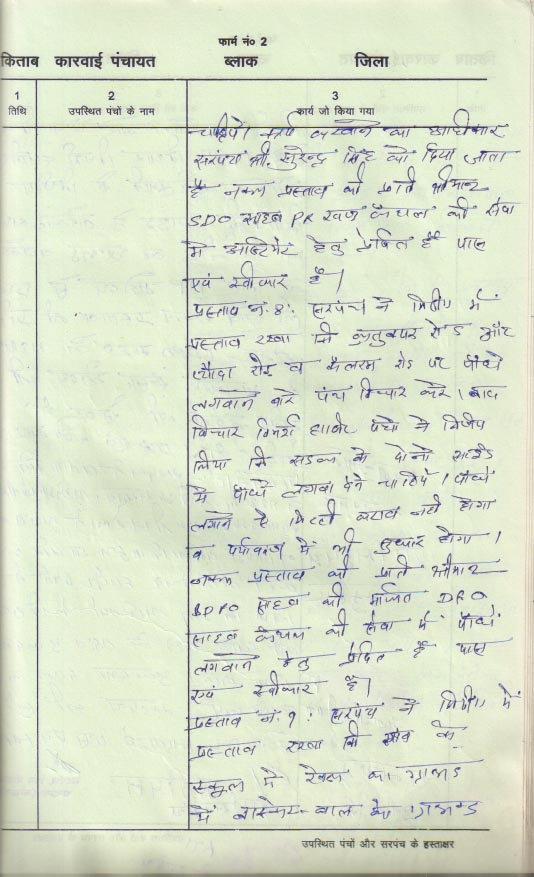 फार्म नं० 2
किताब कारवाई पंचायत ब्लाक जिला
1 2 3
तिथि उपस्थित पंचों के नाम कार्य जो किया गया
चाहिये। कार्य करवाने का अधिकार
सरपंच श्री. सुरेन्द्र सिंह को दिया जाता
है नकल प्रस्ताव की प्रति श्रीमान
SDO साहब PR कैथल की सेवा
में हेतु प्रेषित है पास
एवं स्वीकार है।
प्रस्ताव नं. 8: सरपंच ने मिटींग में
प्रस्ताव रखा कि रोड और
रोड व कैलरम रोड पर पौधे
लगवाने बारे पंच विचार करे। बाद
विचार विमर्श हाजिर पंचो ने निर्णय
लिया कि सडक के दोनो साईड
में पौधे लगवा देने चाहिये। पौधे
लगाने से मिट्टी कटाव नही होगा
व पर्यावरण में भी सुधार होगा।
नकल प्रस्ताव की प्रति श्रीमान
BDPO साहब की मार्फत DRO
साहब कैथल की सेवा में पौधे
लगवाने हेतु प्रेषित है पास
एवं स्वीकार है।
प्रस्ताव नं. 9: सरपंच ने मिटींग में
प्रस्ताव रखा कि गांव के
स्कूल में खेल का ग्राऊंड
में बास्केट-बाल का ग्राऊण्ड
उपस्थित पंचों और सरपंच के हस्ताक्षर